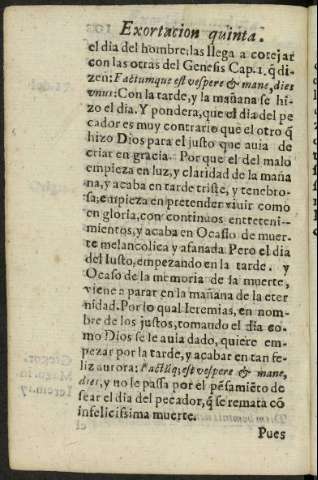 Exortacion quinta.
el dia del hombre: las llega a cotejar
con las otras del Genesis Cap. 1. q̃ di-
zen: Factumque est vespere & mane, dies
vnus: Con la tarde, y la mañana se hi-
zo el dia. Y pondera, que el dia del pe
cador es muy contrario que el otro q̃
hizo Dios para el justo que auia de
criar en gracia. Porque el del malo
empieza en luz, y claridad de la maña
na, y acaba en tarde triste, y tenebro-
sa, empieza en pretender viuir como
en gloria, con continuos entreteni-
mientos, y acaba en Ocasso de muer-
te melancolica y afanada. Pero el dia
del Iusto, empezando en la tarde. y
Ocaso de la memoria de la muerte,
viene a parar en la mañana de la eter
nidad. Por lo qual Ieremias, en nom-
bre de los justos, tomando el dia co-
mo Dios se le auia dado, quiere em-
pezar por la tarde, y acabar en tan fe-
liz aurora: Factũq; est vespere & mane,
dies, y no le passa por el pẽsamiẽto de
sear el dia del pecador, q̃ se remata cõ
infelicissima muerte.
Pues